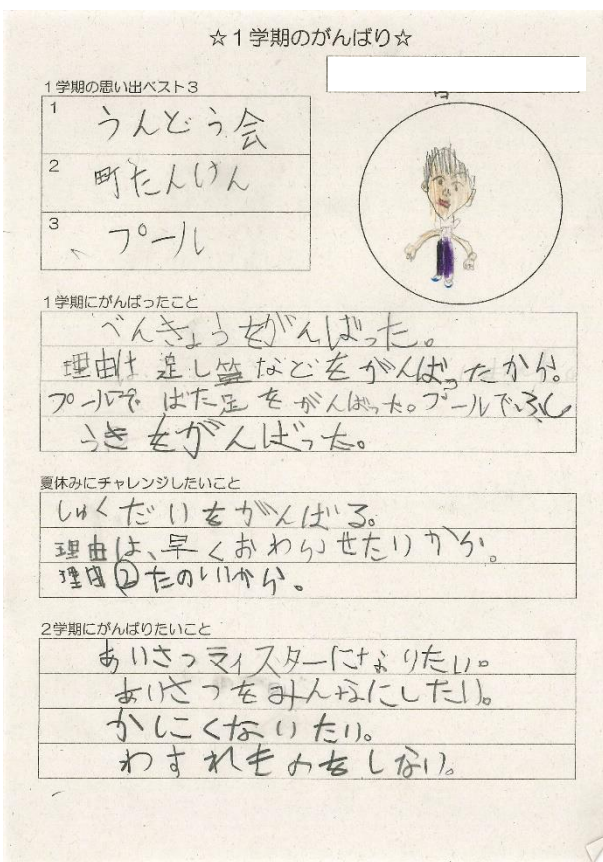 ☆1学期のがんばり☆
1学期の思い出ベスト3
1 うんどう会
2 町たんけん
3 プール
1学期にがんばったこと
べんきょうをがんばった。
理由は足し算などをがんばったから。
プールでばた足をがんばった。プールでふし
うきをがんばった。
夏休みにチャレンジしたいこと
しゅくだいをがんばる。
理由は、早くおわらせたいから。
理由②たのしいから。
2学期にがんばりたいこと
あいさつマイスターになりたい。
あいさつをみんなにしたい。
かしこくなりたい。
わすれものをしない。